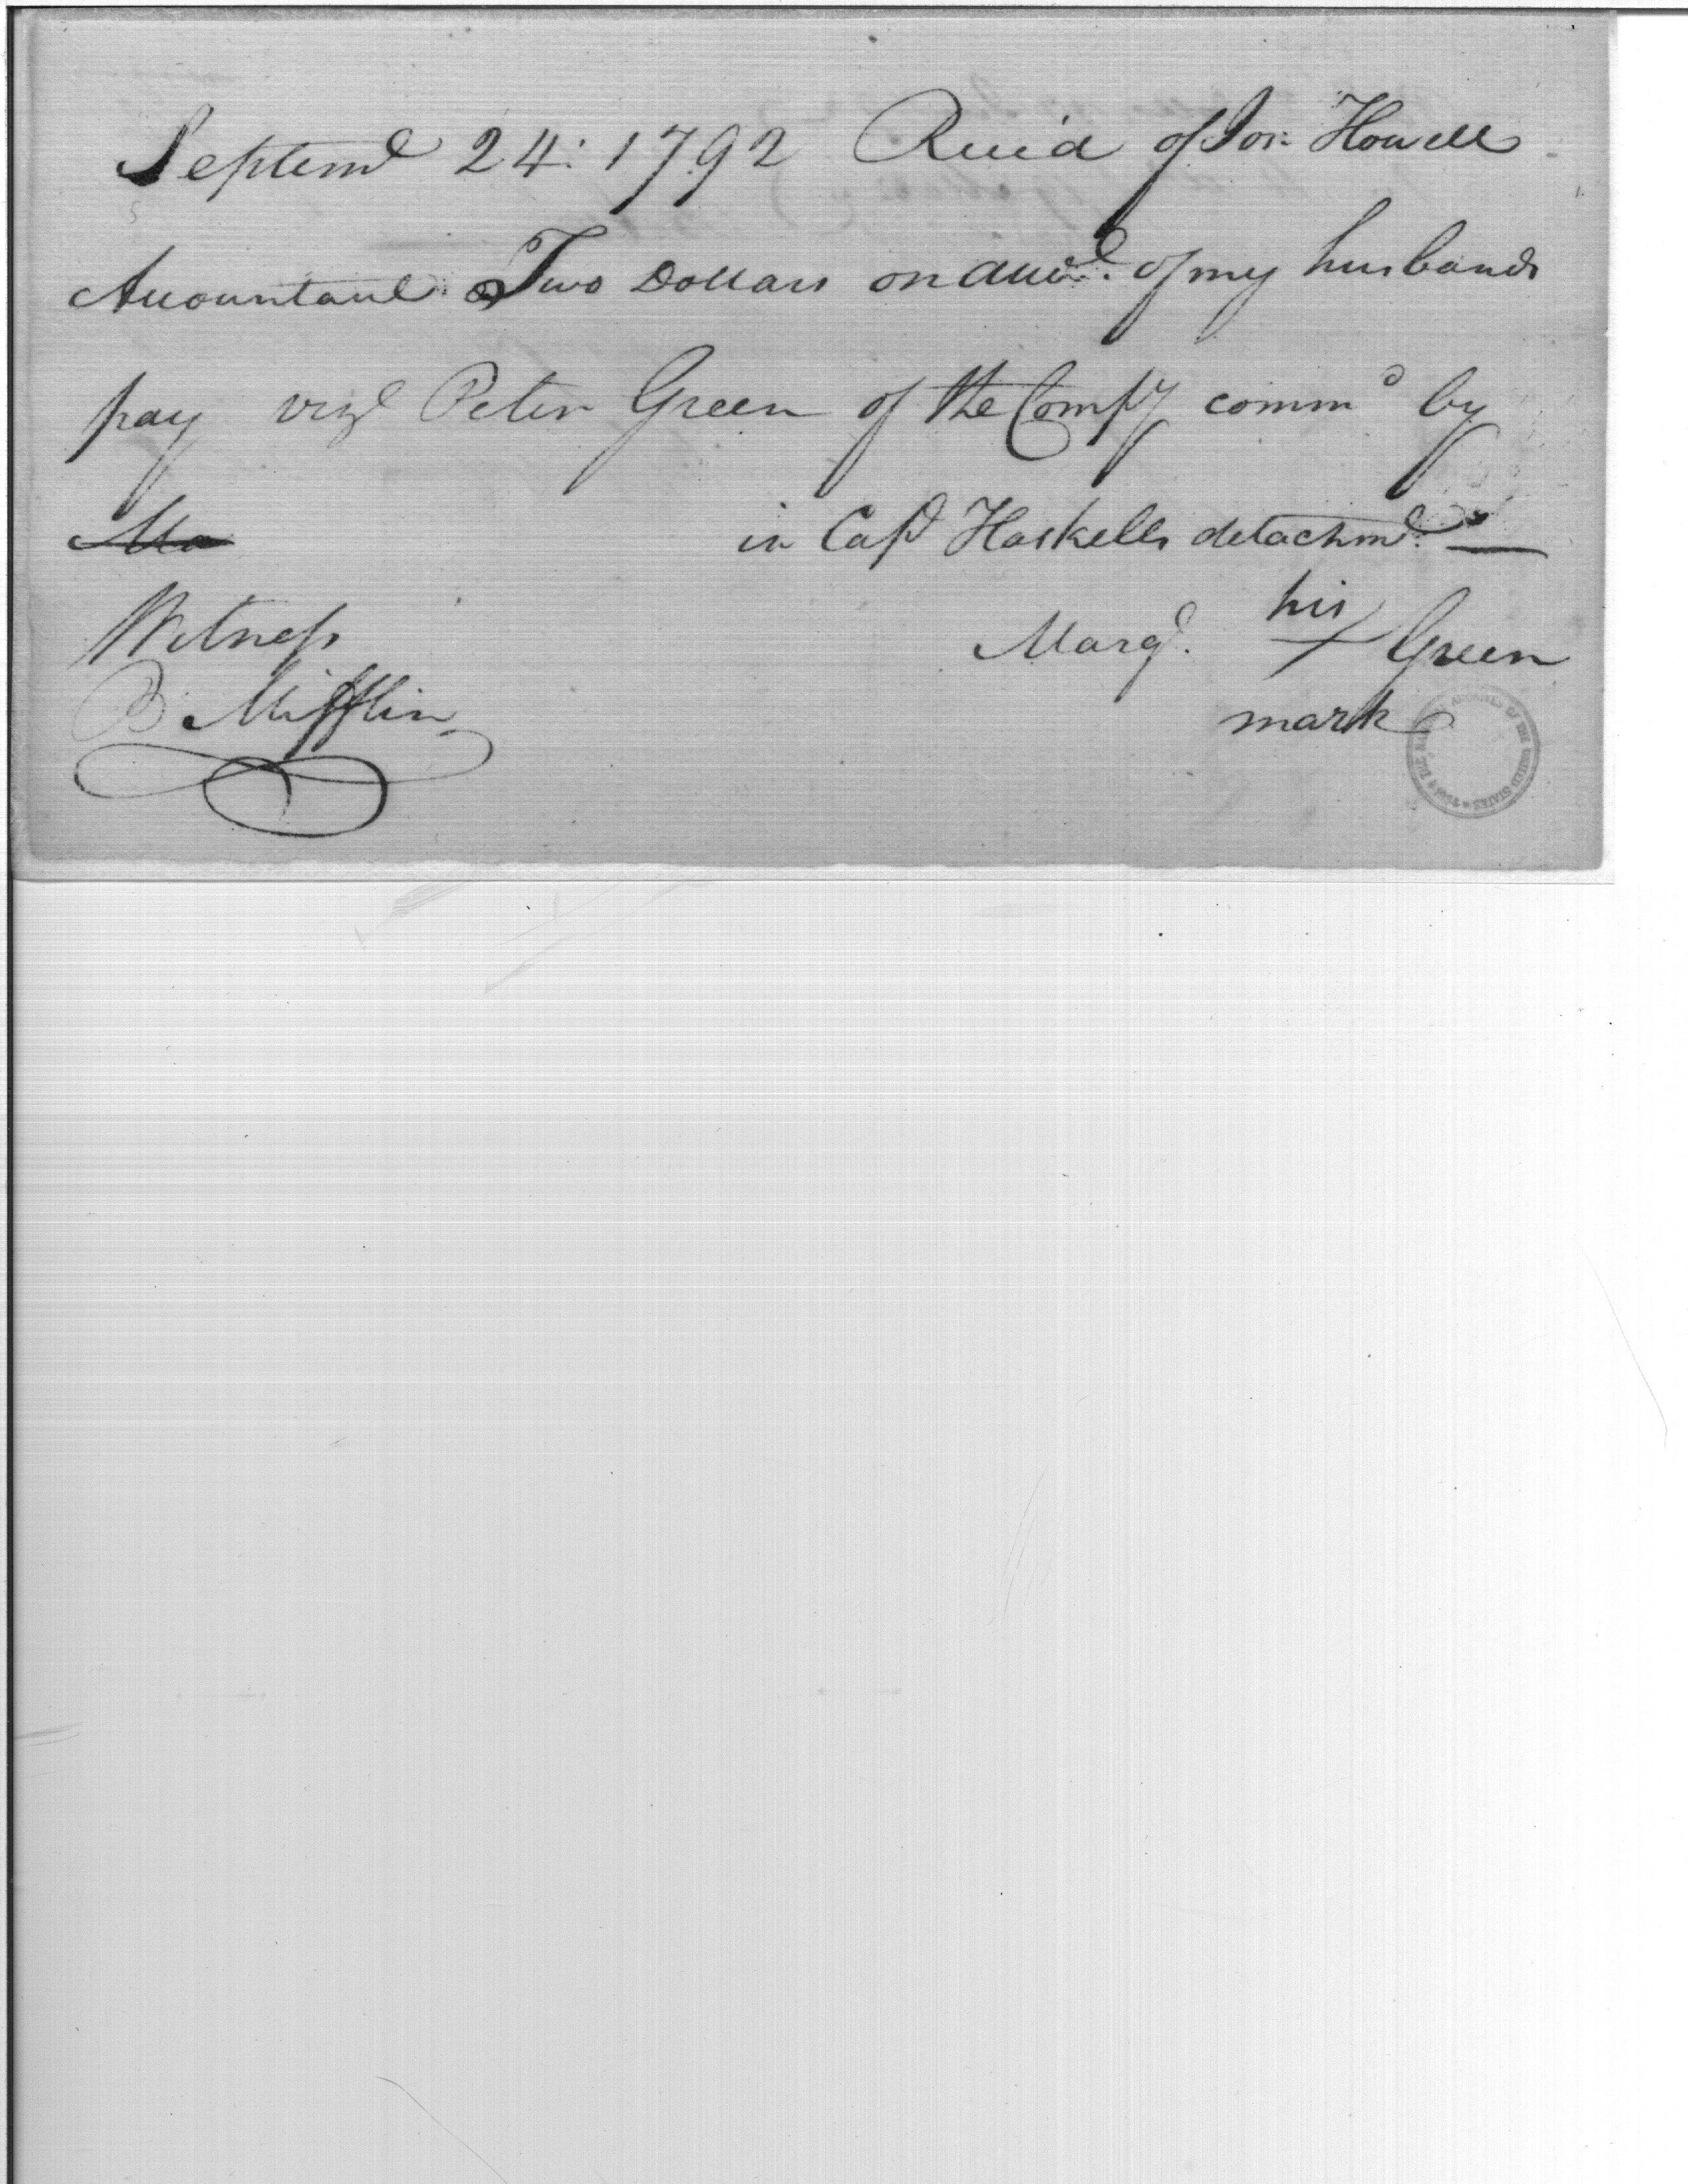 Septemr 24: 1792 Rec'd of Jos: Howell
Accountant Two Dollars on accot. of my husbands
pay vizt Peter Green of the Compy commd by
Ma
in Capt Haskells detachmt.
Witness
his
Margt. + Green
B Mifflin
mark
THE NATIONAL ARCHIVES OF THE UNITED STATES